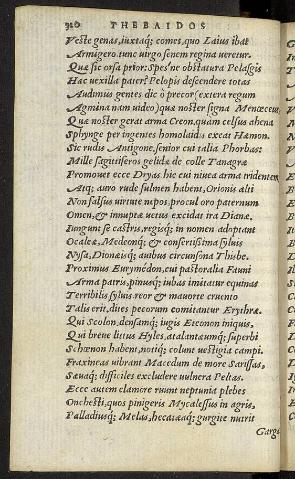 THEBAIDOS
Veste genas, iuxtaq; comes, quo Laius ibat
Armigero. tunc uirgo senem regina ueretur.
Quæ sic orsa prior. Spes ne obstatura Pelasgis
Hac uexilla pater? Pelopis descendere totas
Audimus gentes dic ô precor, extera regum
Agmina nam uideo, quæ nostër signa Menœceus,
Quæ nostër gerat arma Creon, quam celsus ahena
Sphynge per ingentes homoloidas exeat Hæmon.
Sic rudis Antigone, senior cui talia Phorbas:
Mille sagittiferos gelidæ de colle Tanagræ
Promouet ecce Dryas hic cui niuea arma tridentem
Atq; auro rude fulmen habent, Orionis alti
Non falsus uirtute nepos, procul oro paternum
Omen, & innuptæ uetus excidat ira Dianæ.
Iungunt se castris, regisq; in nomen adoptant
Ocaleæ, Medeonq; & confertissima syluis
Nysa, Dionæisq; auibus circunsona Thisbe.
Proximus Eurymedon, cui pastoralia Fauni
Arma patris, pinusq; iubas imitatur equinas
Terribilis syluis reor & mauorte cruento
Talis erit, dites pecorum comitantur Erythræ.
Qui Scolon, densamq; iugis Eteonon iniquis,
Qui breue littus Hyles, atalantæumq; superbi
Schœnon habent, notiq; colunt uestigia campi.
Fraxineas uibrant Macedum de more Sarissas,
Sæuaq; difficiles excludere uulnera Peltas.
Ecce autem clamore ruunt neptunia plebes
Onchesti, quos pinigeris Mycalessus in agris,
Palladiusq; Melas, hecatæaq; gurgite nutrit
Garga